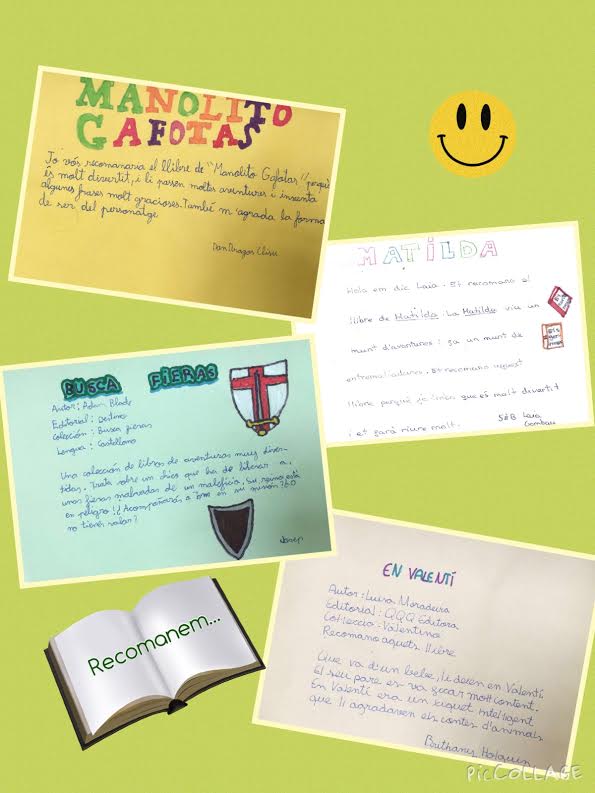 MANOLITO
GAFOTAS
Jo vos recomanaria el llibre de "Manolito Gafotas" perquè
és molt divertit, i li passen moltes aventures i inventa
algunes frases molt gracioses. També m'agrada la forma
de ser del personatge
Dan Dragos
MATILDA
Hola em dic Laia. Et recomano el
llibre de Matilda. La Matilda viu un
munt d'aventures i fa un munt de
entremaliadures. Et recomano aquest
llibre perquè
que és molt divertit
i et farà riure molt.
5èB Laia
BUSCA FIERAS
Autor: Adam Blade
Editorial: Destino
Colección: Busca fieras
Lengua: Castellano
Una colección de libros de aventuras muy diver-
tidas. Trata sobre un chico que ha de liberar a
unas fieras malvadas de un maleficio, su reino está
en peligro! ¿Acompañarás a Tom en su misión? O
no tienes valor?
Josep
EN VALENTÍ
Autor: Luisa Moradura
Editorial: QQQ Editora
Col·lecció: Valentino
Recomano aquets llibre
Que va d'un bebe, li deien en Valentí
El seu pare es va posar molt content.
En Valentí era un xiquet intel·ligent
que li agradaven els contes d'animals.
Brithanis Holguin
Recomanem...
PicCOLLAGE